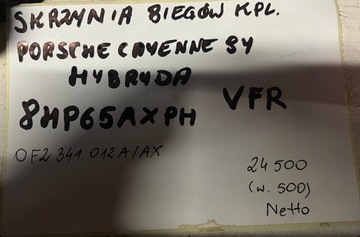 SKRZYNIA BIEGÓW KPL.
PORSCHE CAYENNE 9Y
HYBRYDA
8HP65AXPH VFR
0F2 341 012A/AX
24 500
(w. 500)
Netto